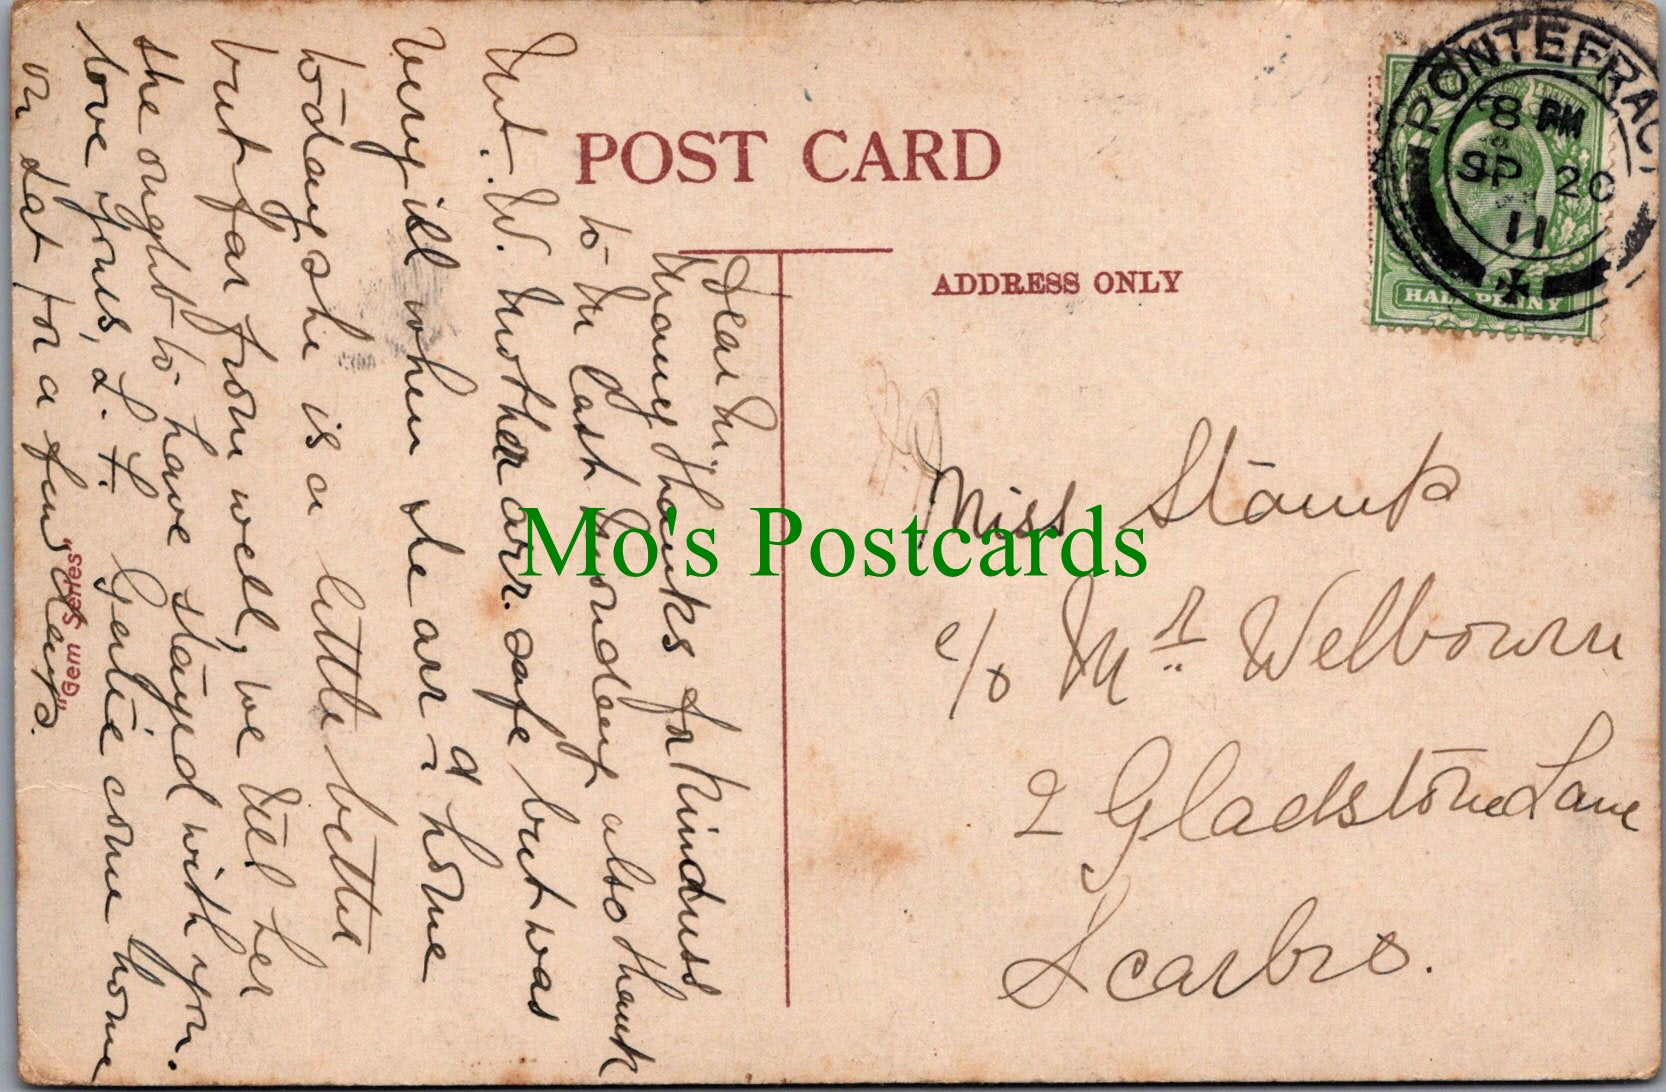 POST CARD
ADDRESS ONLY
PONTEFRACT
8 PM
SP 20
11
HALFPENNY
Dear M,
Many thanks for kindness
to M last Monday also thank
Mrs. W. Mother arr. safe but was
very ill when she arr-d home
today she is a little better
but far from well, we tell her
she ought to have stayed with you.
love yours, L. F. Gertie come home
on Sat for a few days.
Miss Stamp
c/o Mrs Welbourn
2 Gladstone Lane
Scarbro.
"Gem Series"
Mo's Postcards